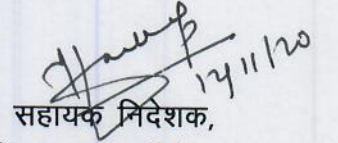 12/11/20
सहायक निदेशक,